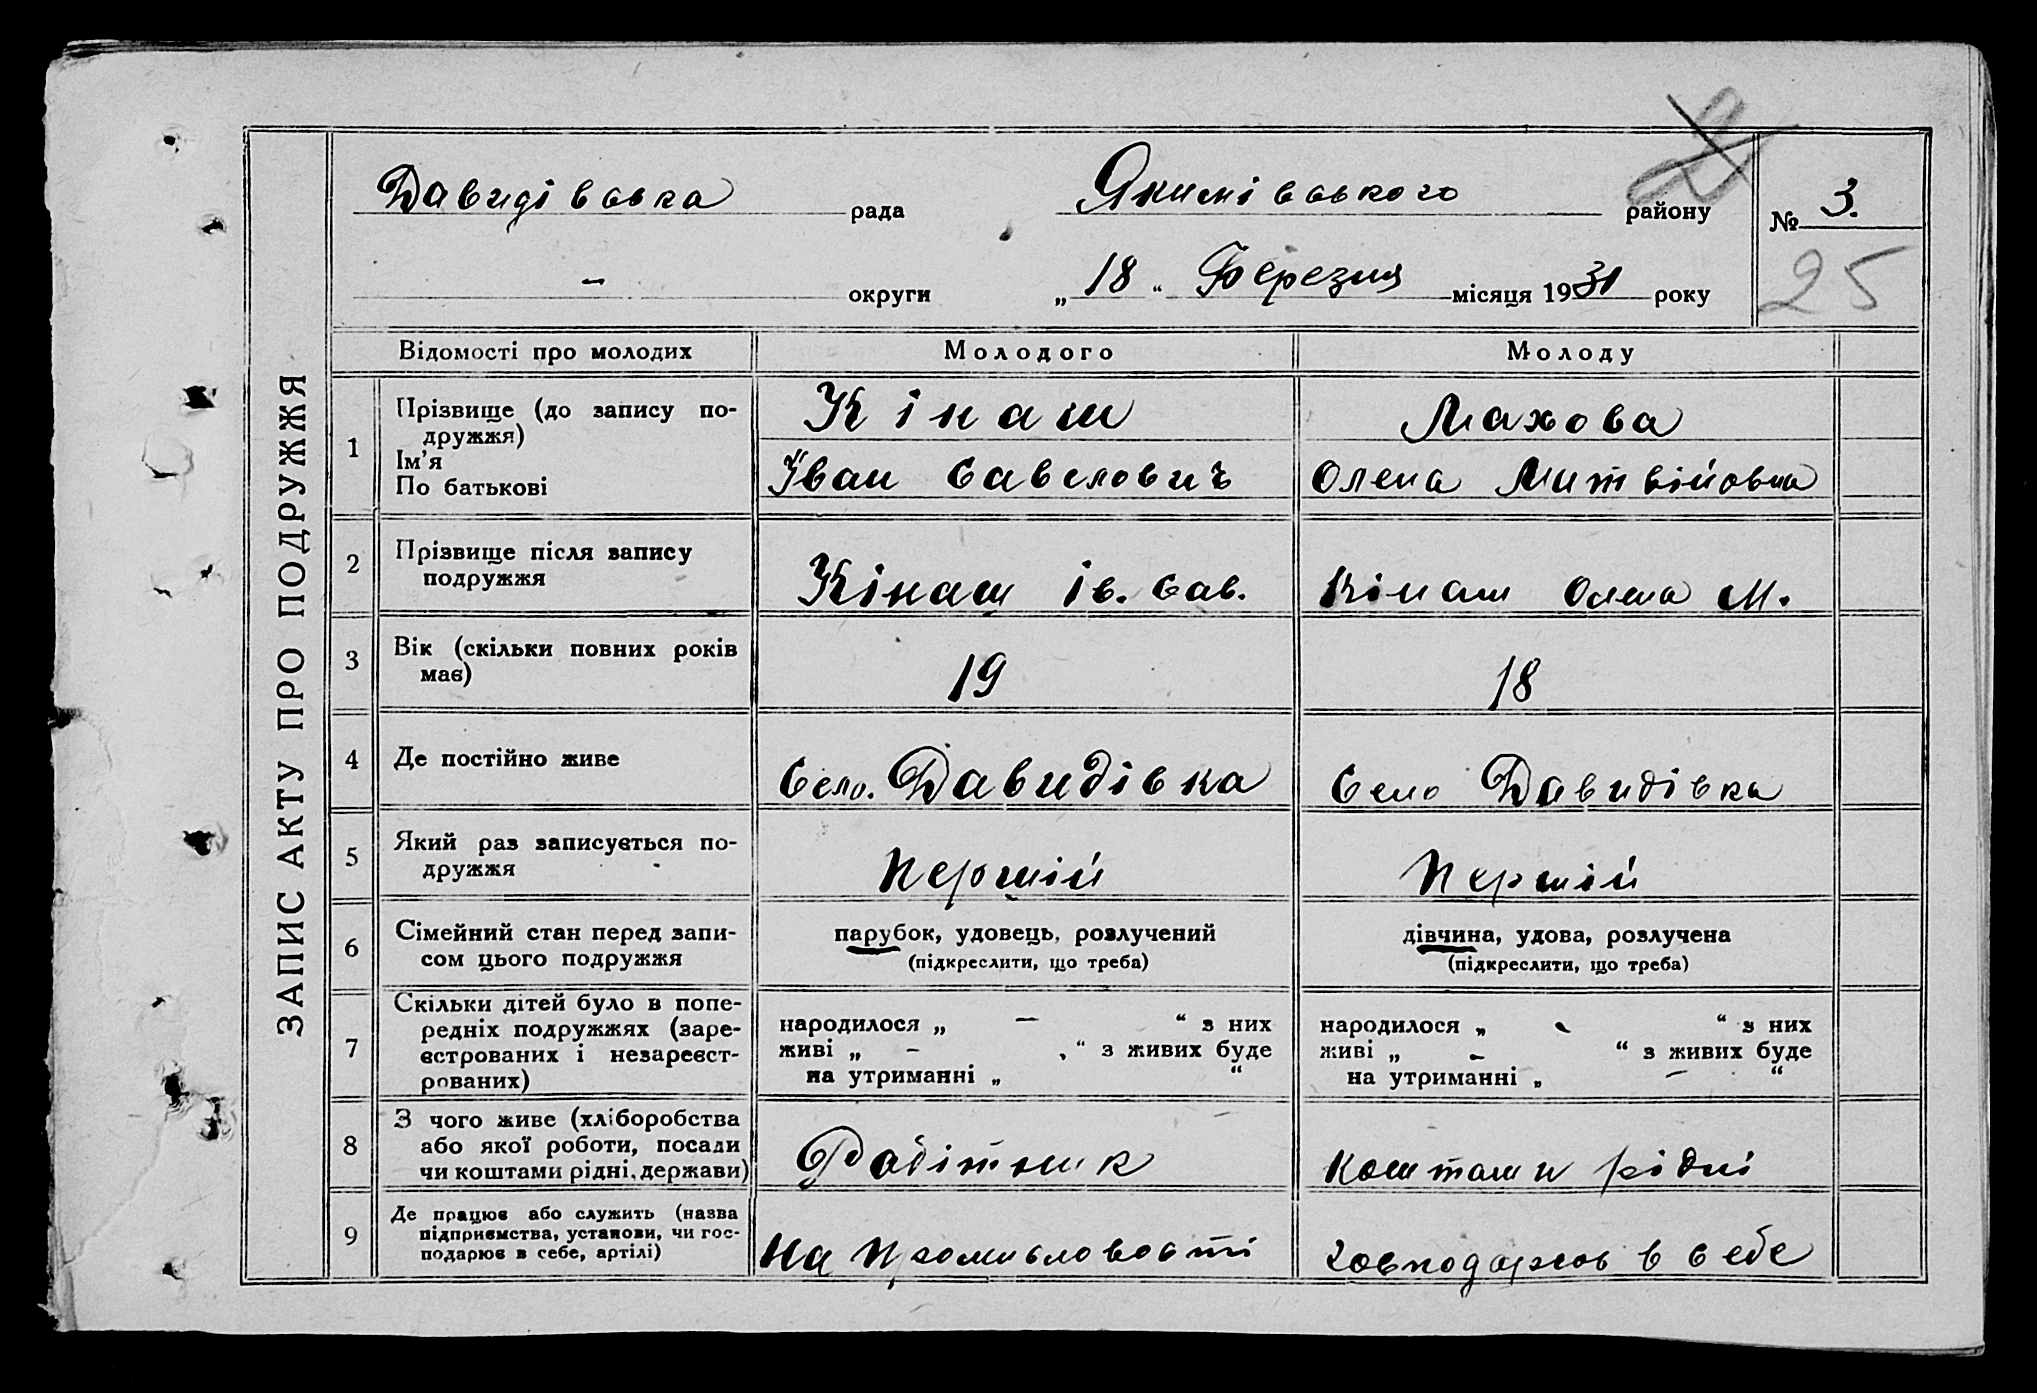 ЗАПИС АКТУ ПРО ПОДРУЖЖЯ
Давидівська рада Якимівського району № 3.
– округи „ 18 “ Березня місяця 1931 року 25
Відомості про молодих Молодого Молоду
1 Прізвище (до запису по-
дружжя)
Ім’я
По батькові
Кінаш
Іван Савелович
Махова
Олена Митвійовна
2 Прізвище після запису
подружжя
Кінаш Ів. Сав.
Кінаш Олена М.
3 Вік (скільки повних років
має)
19
18
4 Де постійно живе
Село. Давидівка
Село Давидівка
5 Який раз записується по-
дружжя
Першій
Першій
6 Сімейний стан перед запи-
сом цього подружжя
парубок, удовець, розлучений
(підкреслити, що треба)
дівчина, удова, розлучена
(підкреслити, що треба)
7 Скільки дітей було в попе-
редніх подружжях (заре-
єстрованих і незареєст-
рованих)
народилося „ – “ з них
живі „ – “ з живих буде
на утриманні „ “
народилося „ - “ з них
живі „ – “ з живих буде
на утриманні „ – “
8 З чого живе (хліборобства
або якої роботи, посади
чи коштами рідні, держави)
Робітник
Коштами рідні
9 Де працює або служить (назва
підприємства, установи, чи гос-
подарює в себе, артілі)
На Промисловості
господарює в себе